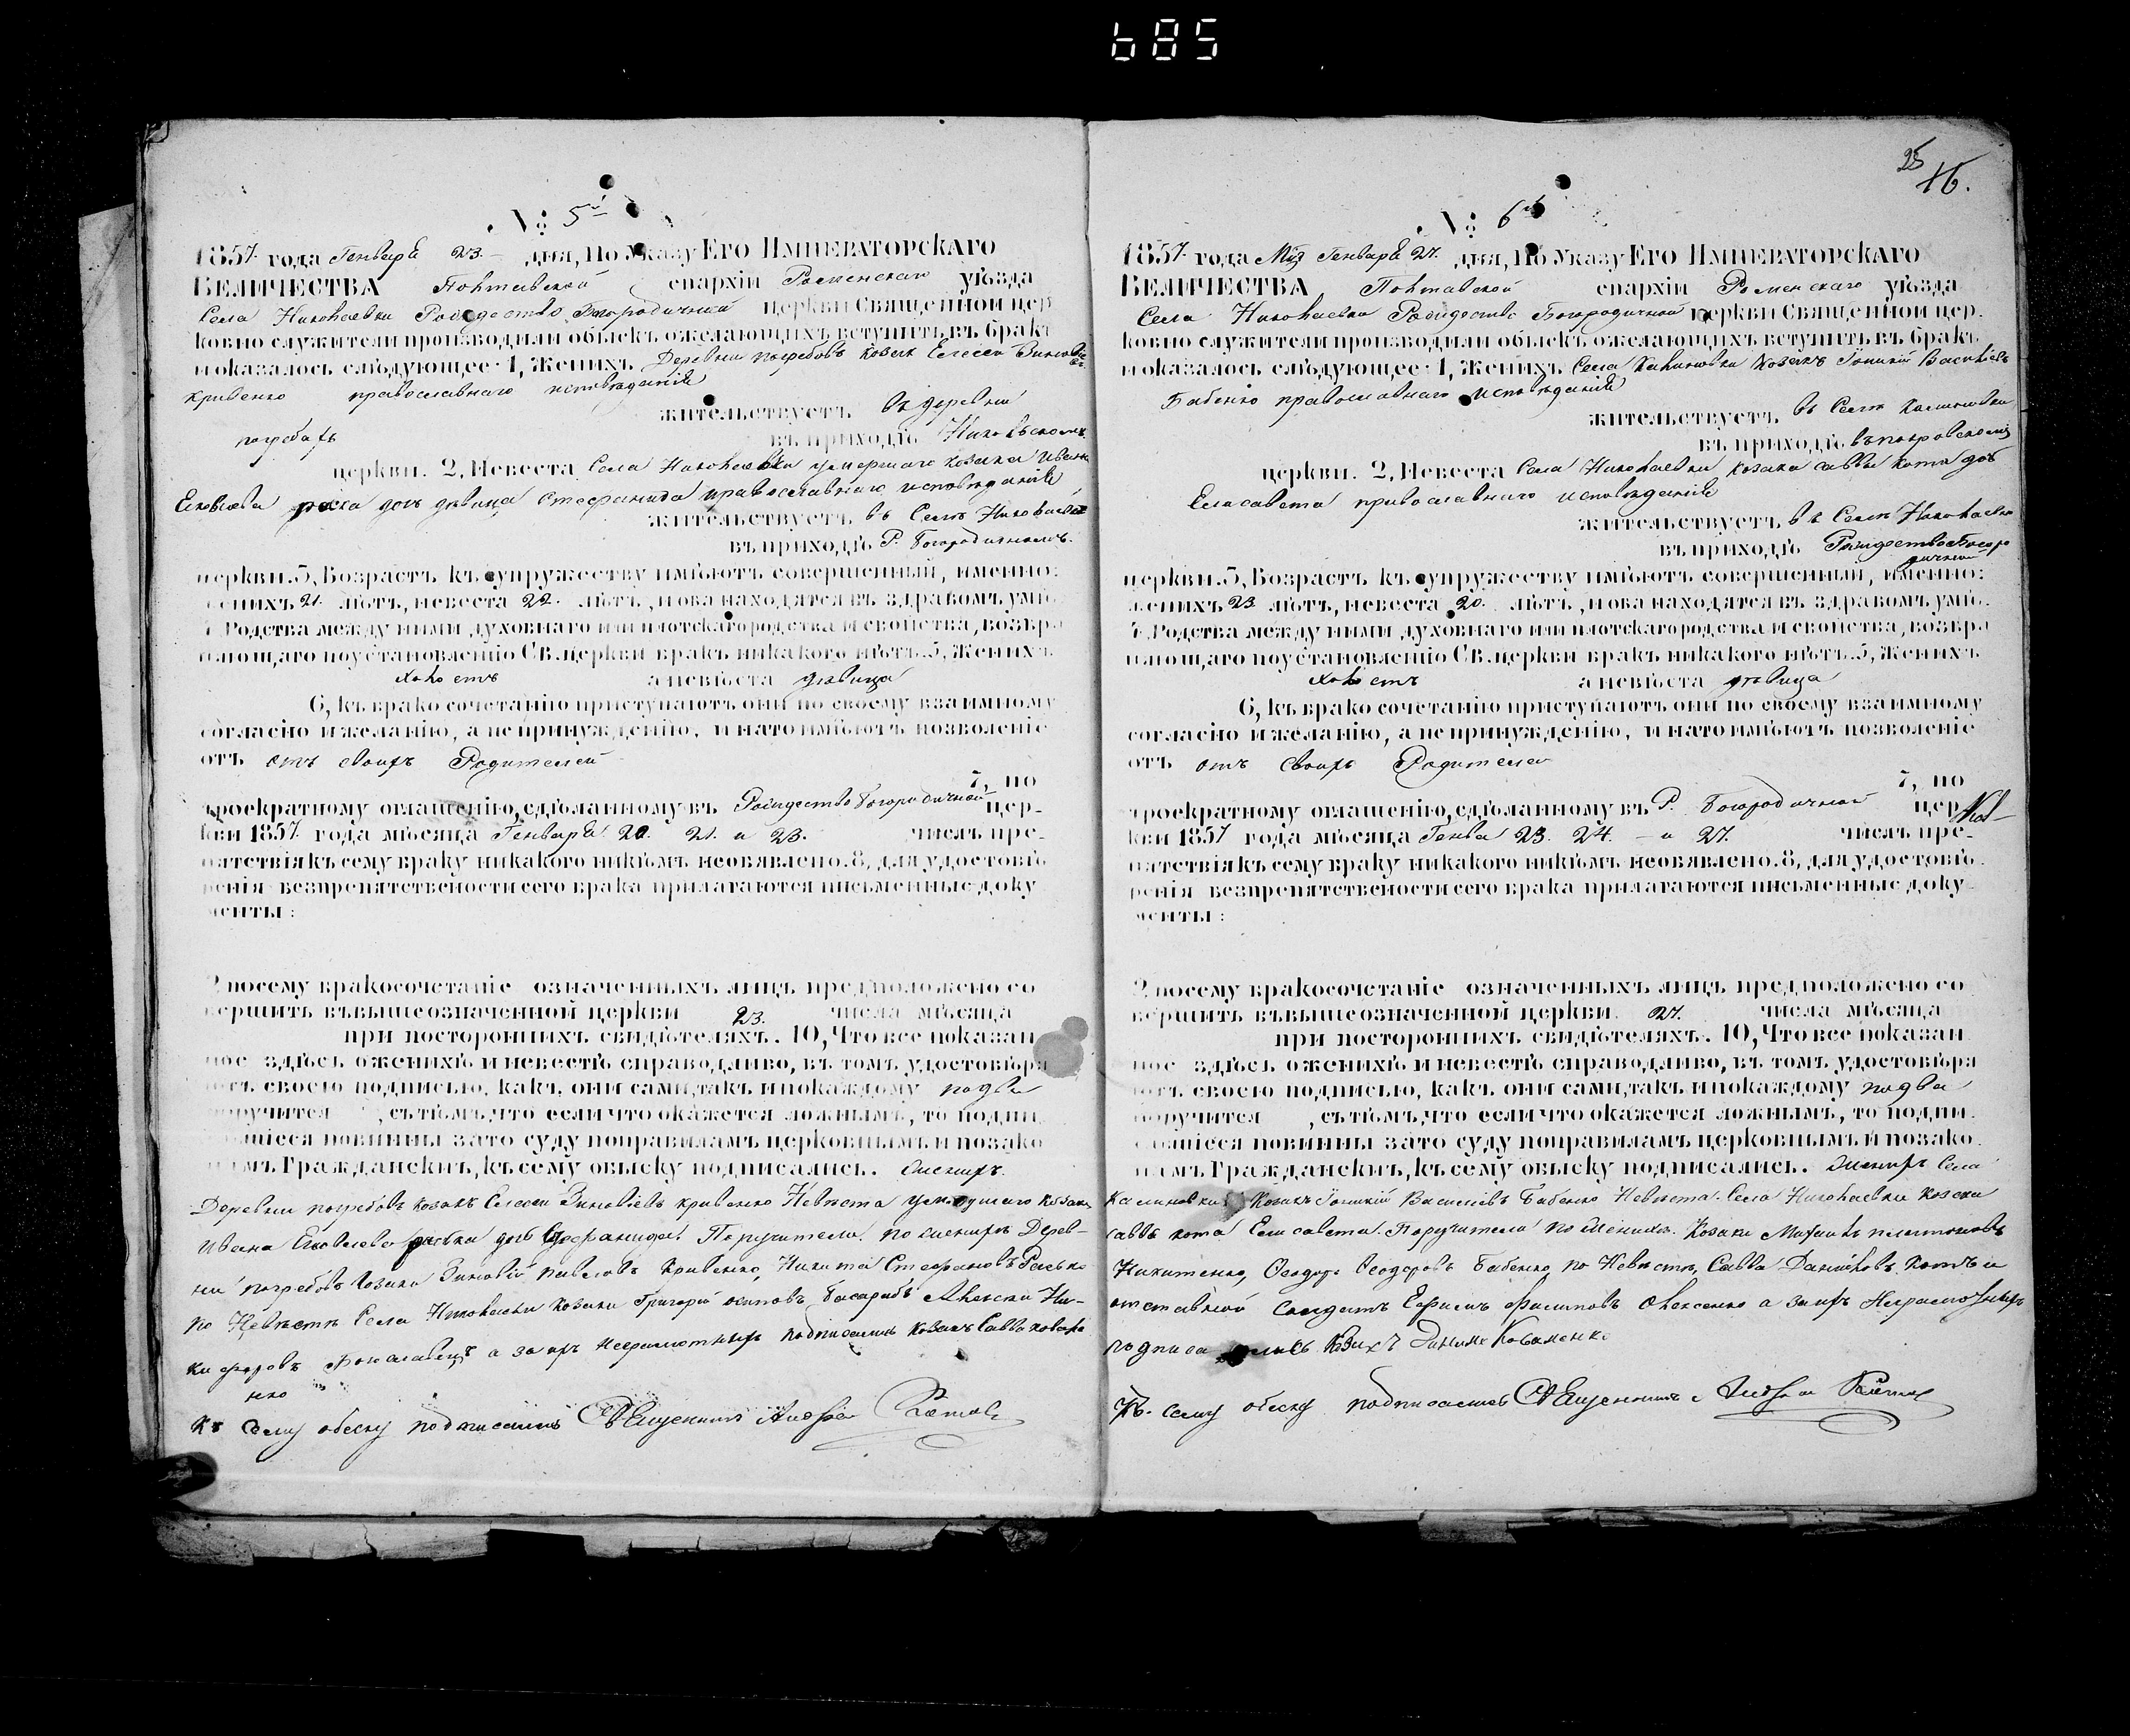 685
№ 5й
1857 года Генваря 23 дня, По Указу ЕГО ИМПЕРАТОРСКАГО
ВЕЛИЧЕСТВА Полтавской епархіи Роменскаго уѣзда
Села Николаевки Рождество Богородичной церкви Священной цер
ковно служители производили обыскъ ожелающихъ вступить въ бракъ
и оказалось слѣдующее: 1, Женихъ Деревни погребовъ козакъ Елесей Зиновіевъ
Кривенко православнаго исповѣданія
жительствуетъ въ деревни
погребахъ въ приходѣ
церкви. 2, Невеста Села Николаевки умершаго козака Ивана
дочь дѣвица Стефанида православнаго исповѣданія
жительствуетъ въ Селѣ Николаевкѣ
въ приходѣ Р. Богородичномъ
церкви. 3, Возрастъ къ супружеству имѣютъ совершенный, именно:
жених 21 лѣтъ, невеста 22 лѣтъ, и оба находятся въ здравомъ умѣ.
Родства между ними духовнаго или плотскаго родства и свойства, возбра
няющаго по установленію Св. церкви бракъ никакого нѣтъ. 5, Женихъ
холостъ а невѣста дѣвица
6, къ брако сочетанію приступаютъ они по своему взаимному
согласію и желанію, а не принужденію, и на то имѣютъ позволеніе
отъ отъ своихъ Родителей
7, по
троекратному оглашенію, сдѣланному въ Рождество Богородичной цер-
кви 1857 года мѣсяца Генваря 20. 21. и 23. числъ пре-
пятствія къ сему браку никакого никѣмъ необявлено. 8, для удостовѣ
ренія безпрепятствености сего брака прилагаются письменные доку
менты:
9 посему бракосочетаніе означенныхъ лицъ предположено со
вершить въ вышеозначенной церкви 23. числа мѣсяца
при посторонныхъ свидѣтеляхъ. 10, Что все показан
ное здѣсь о женихѣ и невестѣ справодливо, въ томъ удостовѣря
ютъ своею подписью, какъ они сами, такъ и по каждому по два
поручится, съ тѣмъ, что если что окажется ложнымъ, то подпи
савшіеся повинны за то суду по правиламъ церковнымъ и по зако
намъ Гражданскимъ, къ сему обыску подписались. Женихъ
Деревни погребовъ козакъ Елесей Зиновіевъ Кривенко Невѣста умершаго козака
Ивана дочь Стефанида. Поручители: по женихѣ Дерев-
ни погребовъ Козаки Зиновій Павловъ Кривенко, Никита Стефановъ
по Невѣстѣ Села Николаевки козаки Григорій Осиповъ Басарабъ Алексей Ни-
кифоровъ а за ихъ неграмотныхъ подписался козакъ Савва Ковале
нко
Къ сему обыску подписался Священникъ Андрей
25
16.
№ 6й
1857 года Мца Генваря 27. дня, По Указу ЕГО ИМПЕРАТОРСКАГО
ВЕЛИЧЕСТВА Полтавской епархіи Роменскаго уѣзда
Села Николаевки Рождество Богородичной церкви Священной цер.
ковно служители производили обыскъ ожелающихъ вступить въ бракъ
и оказалось слѣдующее: 1, Женихъ Села Калиновки Козакъ Іоникій Василіевъ
Бабенко православнаго исповѣданія
жительствуетъ въ Селѣ Калиновки
въ приходѣ въ покровскомъ
церкви. 2, Невеста Села Николаевки козака Саввы Кота дочь
Елисавета православнаго исповѣданія
жительствуетъ въ Селѣ Николаевки
въ приходѣ Рождество Богоро
дичной
церкви. 3, Возрастъ къ супружеству имѣютъ совершенный, именно:
жених 23 лѣтъ, невеста 20. лѣтъ, и оба находятся въ здравомъ умѣ.
4, Родства между ними духовнаго или плотскаго родства и свойства, возбра
няющаго по установленію Св. церкви бракъ никакого нѣтъ. 5, Женихъ
холостъ а невѣста дѣвица
6, къ брако сочетанію приступаютъ они по своему взаимному
согласію и желанію, а не принужденію, и на то имѣютъ позволеніе
отъ отъ своихъ Родителей
7, по
троекратному оглашенію, сдѣланному въ Р. Богородичной цер
кви 1857 года мѣсяца Генва 23. 24. и 27. числъ пре-
пятствія къ сему браку никакого никѣмъ необявлено. 8, для удостовѣ
ренія безпрепятствености сего брака прилагаются письменные доку
менты:
9 посему бракосочетаніе означенныхъ лицъ предположено со
вершить въ вышеозначенной церкви 27. числа мѣсяца
при посторонныхъ свидѣтеляхъ. 10, Что все показан
ное здѣсь о женихѣ и невестѣ справодливо, въ томъ удостовѣря
ютъ своею подписью, какъ они сами, такъ и по каждому по два
поручится, съ тѣмъ, что если что окажется ложнымъ, то подпи
савшіеся повинны за то суду по правиламъ церковнымъ и по зако
намъ Гражданскимъ, къ сему обыску подписались. Женихъ Села
Калиновки Козакъ Іоникій Василіевъ Бабенко Невѣста: Села Николаевки козака
Саввы кота Елисавета. Поручители по женихѣ. Козаки Михаилъ Платоновъ
Никитенко, Феодоръ Феодоровъ Бабенко, по Невѣстѣ, Савва Даниловъ Котъ и
отставной Солдатъ Ефимъ Филиповъ Олексенко а за ихъ Неграмотныхъ
подписались Коваленко
Къ сему обыску подписался Священникъ Андрей